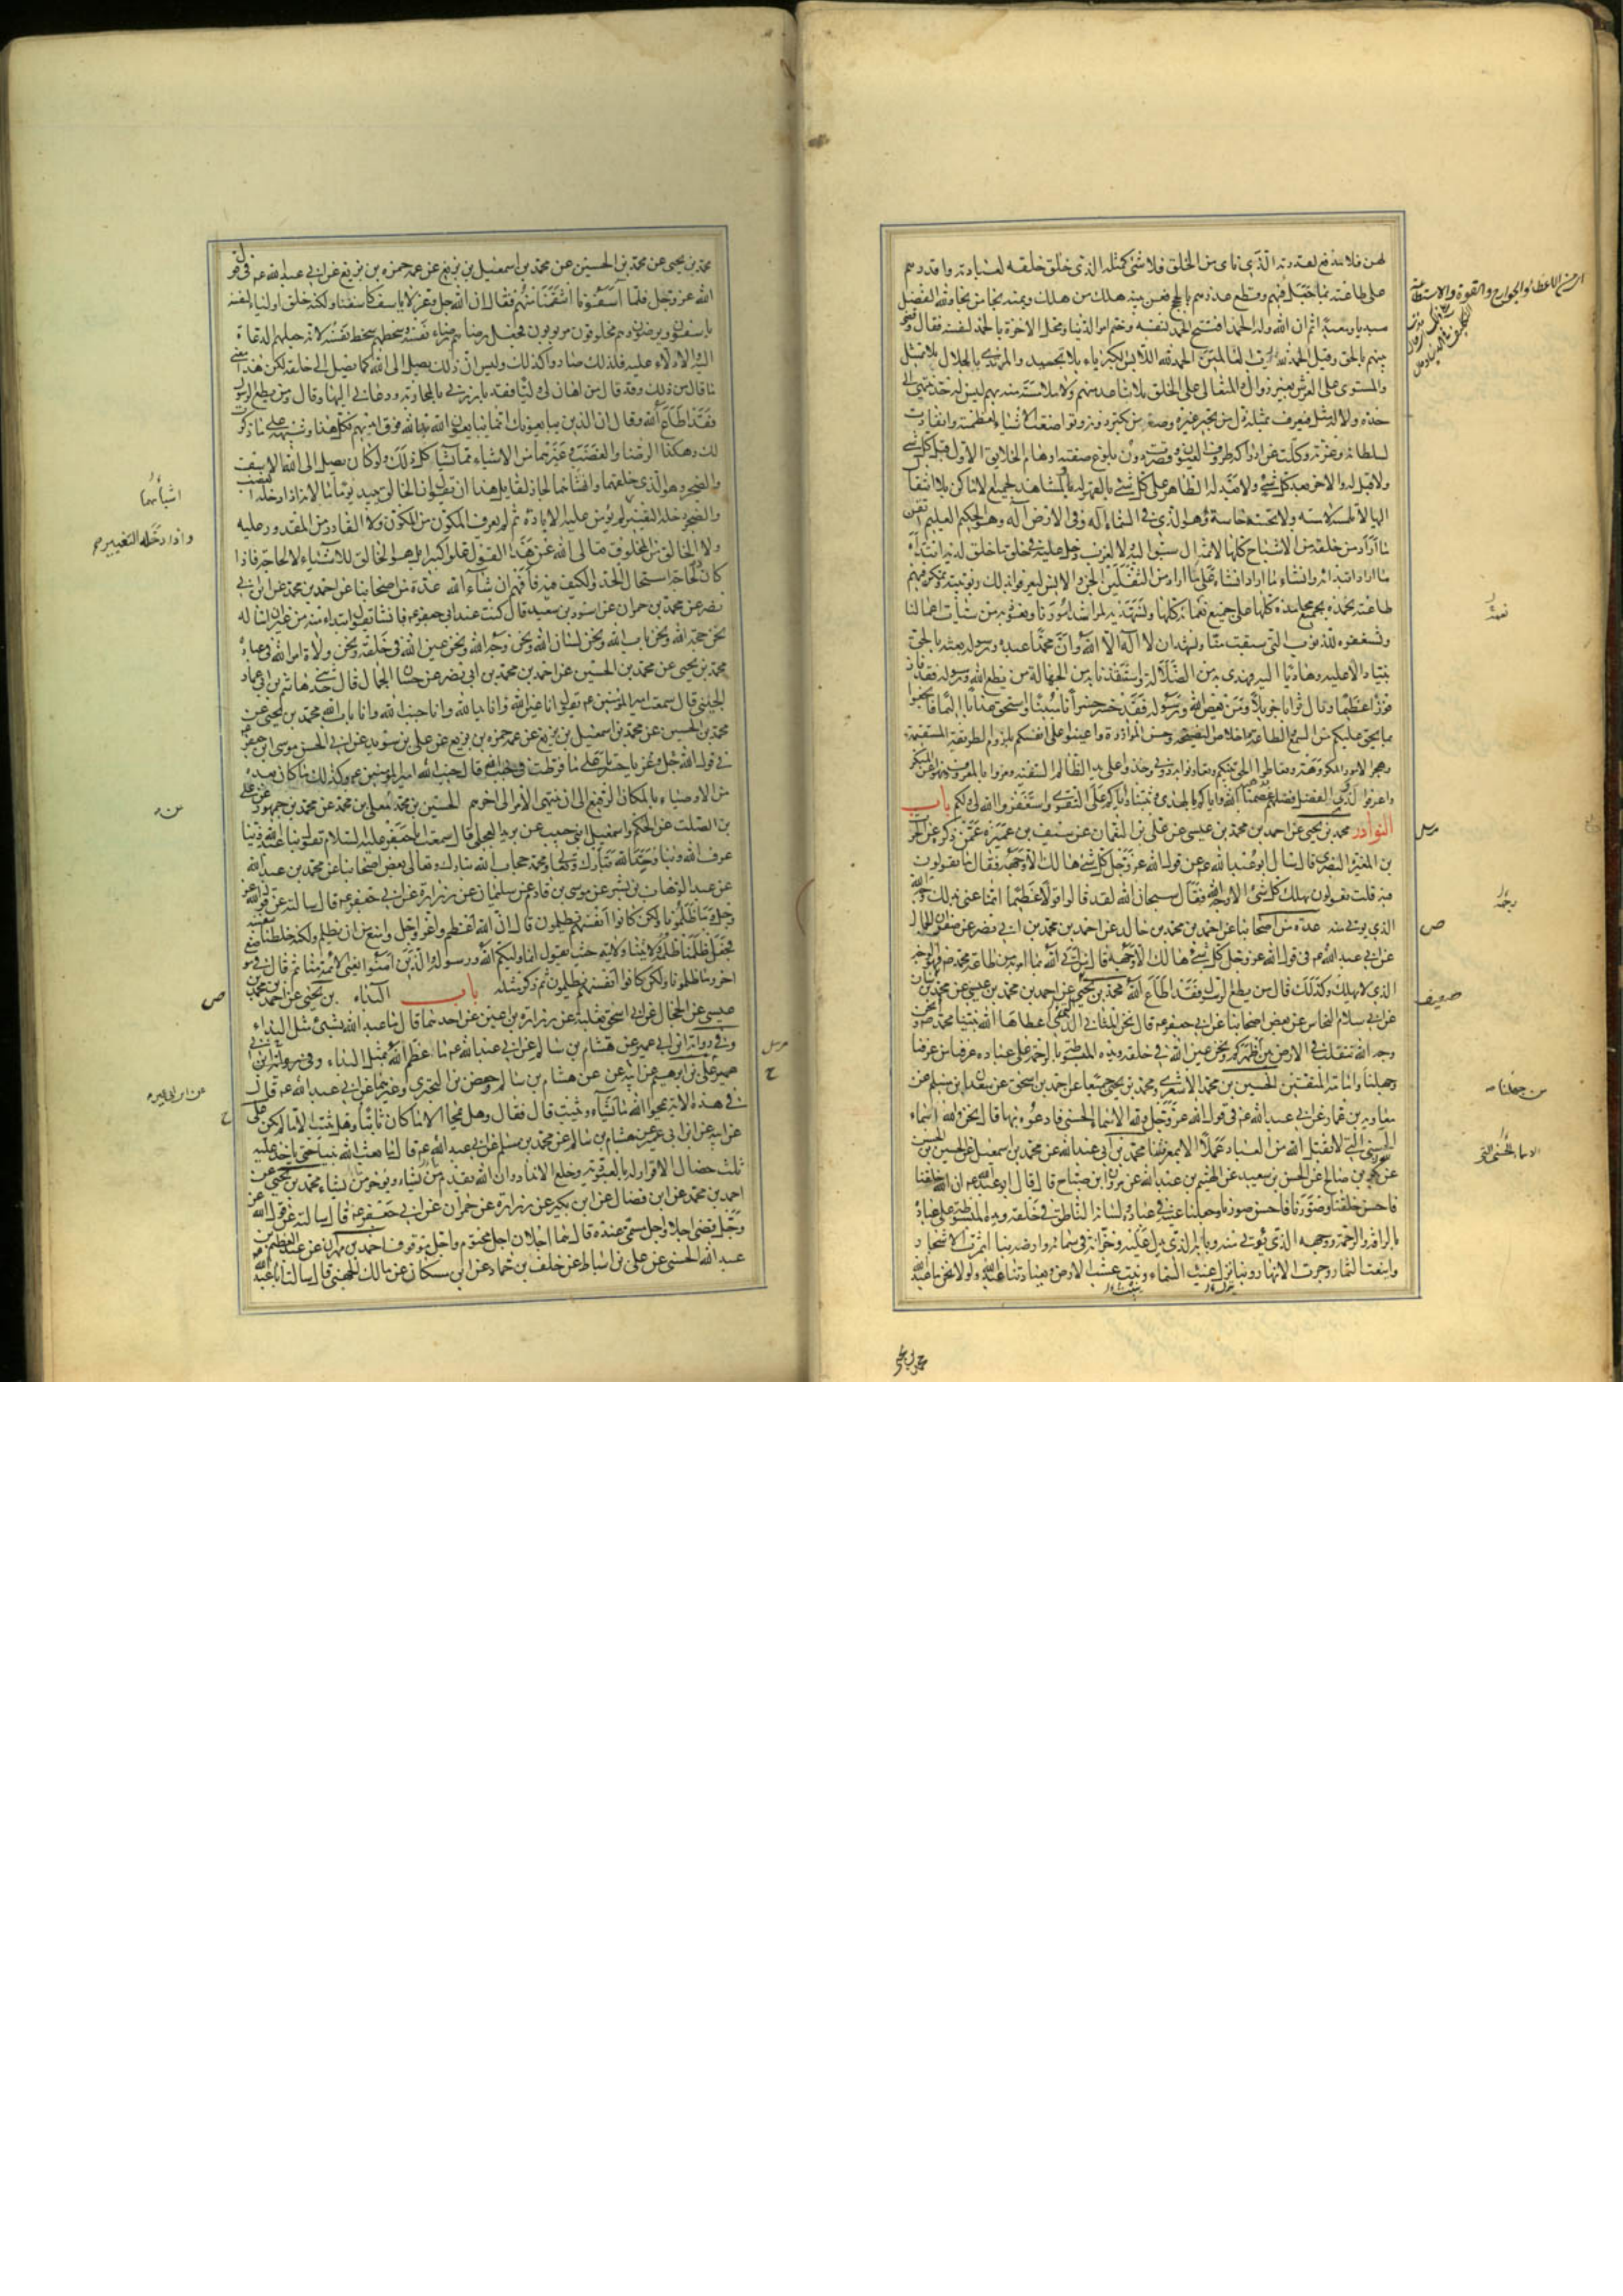 لهن فلا مدفع لقدرته الذي نأى من الخلق فلا شئ كمثله الذي خلق خلقه لعبادته واقدرهم
على طاعته بما جعل فيهم وقطع عذرهم بالحجج فعن بينة هلك من هلك وبمنه نجا من نجا ولله الفضل
مبديا ومعيدا ثم ان الله وله الحمد افتتح الحمد لنفسه وختم امر الدنيا ومحل الاخرة بالحمد لنفسه فقال وقضى
بينهم بالحق وقيل الحمد لله رب العالمين الحمد لله اللابس الكبرياء بلا تجسيد والمرتدي بالجلال بلا تمثيل
والمستوى على العرش بغير زوال والمتعالى على الخلق بلا تباعد منهم ولا ملامسة منه لهم ليس له حد ينتهى الى
حده ولا له مثل فيعرف بمثله ذل من تجبر غيره وصغر من تكبر دونه وتواضعت الاشياء لعظمته وانقادت
لسلطانه وعزته وكلت عن ادراكه طروف العيون وقصرت دون بلوغ صفته اوهام الخلايق الاول قبل كل شئ
ولا قبل له والاخر بعد كل شئ ولا بعد له الظاهر على كل شئ بالقهر له والمشاهد لجميع الاماكن بلا انتقال
اليها لا تلمسه لامسة ولا تحسه حاسة وهو الذي في السماء اله وفي الارض اله وهو الحكيم العليم اتقن
ما اراد من خلقه من الاشباح كلها لا بمثال سبق اليه ولا لغوب دخل عليه في خلق ما خلق لديه ابتدأ
ما اراد ابتداءه وانشأ ما اراد انشاءه على ما اراد من الثقلين الجن والانس ليعرفوا بذلك ربوبيته وتمكن فيهم
طاعته نحمده بجميع محامده كلها على جميع نعمائه كلها ونستهديه لمراشد امورنا ونعوذ به من سيئات اعمالنا
ونستغفره للذنوب التي سبقت منا ونشهد ان لا اله الا الله وان محمدا عبده ورسوله بعثه بالحق
نبيا دالا عليه وهاديا اليه فهدى به من الضلالة واستنقذنا به من الجهالة من يطع الله ورسوله فقد فاز
فوزا عظيما ونال ثوابا جزيلا ومن يعص الله ورسوله فقد خسر خسرانا مبينا واستحق عذابا اليما فانجعوا
بما يحق عليكم من السمع والطاعة واخلاص النصيحة وحسن المؤازرة واعينوا على انفسكم بلزوم الطريقة المستقيمة
وهجر الامور المكروهة وتعاطوا الحق بينكم وتعاونوا به دوني وخذوا على يد الظالم السفيه ومروا بالمعروف وانهوا عن المنكر
واعرفوا لذوي الفضل فضلهم عصمنا الله واياكم بالهدى وثبتنا واياكم على التقوى واستغفر الله لي ولكم باب
النوادر محمد بن يحيى عن احمد بن محمد بن عيسى عن علي بن النعمان عن سيف بن عميرة عمن ذكره عن الحرث
بن المغيرة النصري قال سئل ابو عبد الله عن قول الله عز وجل كل شئ هالك الا وجهه فقال ما يقولون
فيه قلت يقولون يهلك كل شئ الا وجه الله فقال سبحان الله لقد قالوا قولا عظيما انما عنى بذلك وجه الله
الذي يؤتى منه عدة من اصحابنا عن احمد بن محمد بن خالد عن احمد بن محمد بن ابي نصر عن صفوان الجمال
عن ابي عبد الله ع في قول الله عز وجل كل شئ هالك الا وجهه قال من اتى الله بما امر به من طاعة محمد ص فهو الوجه
الذي لا يهلك وكذلك قال من يطع الرسول فقد اطاع الله محمد بن يحيى عن احمد بن محمد بن عيسى عن محمد بن سنان
عن ابي سلام النحاس عن بعض اصحابنا عن ابي جعفر ع قال نحن المثاني الذي اعطاها الله نبينا محمد ص ونحن
وجه الله نتقلب في الارض بين اظهركم ونحن عين الله في خلقه ويده المبسوطة بالرحمة على عباده عرفنا من عرفنا
وجهلنا وامامة المتقين الحسين بن محمد الاشعري ومحمد بن يحيى جميعا عن احمد بن اسحق عن سعدان بن مسلم عن
معاوية بن عمار عن ابي عبد الله ع في قول الله عز وجل ولله الاسماء الحسنى فادعوه بها قال نحن والله اسماء
الحسنى التي لا يقبل الله من العباد عملا الا بمعرفتنا محمد بن ابي عبد الله عن محمد بن اسمعيل عن الحسين بن الحسن
عن بكر بن صالح عن الحسن بن سعيد عن الهيثم بن عبد الله عن مروان بن صباح قال قال ابو عبد الله ع ان الله خلقنا
فاحسن خلقنا وصورنا فاحسن صورنا وجعلنا عينه في عباده ولسانه الناطق في خلقه ويده المبسوطة على عباده
بالرافة والرحمة ووجهه الذي يؤتى منه وبابه الذي يدل عليه وخزانه في سمائه وارضه بنا اثمرت الاشجار
واينعت الثمار وجرت الانهار وبنا ينزل غيث السماء ونبت عشب الارض وبعبادتنا عبد الله ولولا نحن ما عبد الله
مرسل
ص
ضعيف
محمد بن يحيى
محمد بن يحيى عن محمد بن الحسين عن محمد بن اسمعيل بن بزيع عن عمه حمزه بن بزيع عن ابي عبد الله ع في قول
الله عز وجل فلما آسفونا انتقمنا منهم فقال ان الله جل وعز لا ياسف كاسفنا ولكنه خلق اولياء لنفسه
ياسفون ويرضون وهم مخلوقون مربوبون فجعل رضاهم رضاء نفسه وسخطهم سخط نفسه لانه جعلهم الدعاة
اليه والادلاء عليه فلذلك صاروا كذلك وليس ان ذلك يصل الى الله كما يصل الى خلقه لكن هذا معنى
ما قال من ذلك وقد قال من اهان لي وليا فقد بارزني بالمحاربة ودعاني اليها وقال ومن يطع الرسول
فقد اطاع الله وقال ان الذين يبايعونك انما يبايعون الله يد الله فوق ايديهم فكل هذا وشبهه على ما ذكرت
لك وهكذا الرضا والغضب وغيرهما من الاشياء مما يشاكل ذلك ولو كان يصل الى الله الاسف
والضجر وهو الذي خلقهما وانشاهما لجاز لقايل هذا ان يقول ان الخالق يبيد يوما ما لانه اذا دخله الغضب
والضجر دخله التغيير لم يؤمن عليه الابادة ثم لم يعرف المكون من المكون ولا القادر من المقدور عليه
ولا الخالق من المخلوق تعالى الله عن هذا القول علوا كبيرا بل هو الخالق للاشياء لا لحاجة فاذا
كان لا لحاجة استحال الحد والكيف فيه فافهم ان شاء الله عدة من اصحابنا عن احمد بن محمد عن ابن ابي
نصر عن محمد بن حمران عن اسود بن سعيد قال كنت عند ابي جعفر ع فانشا يقول ابتداء منه من غير ان اساله
نحن حجة الله ونحن باب الله ونحن لسان الله ونحن وجه الله ونحن عين الله في خلقه ونحن ولاة امر الله في عباده
محمد بن يحيى عن محمد بن الحسين عن احمد بن محمد بن ابي نصر عن حسان الجمال قال حدثني هاشم بن ابي عمار
الجنبي قال سمعت امير المؤمنين ع يقول انا عين الله وانا يد الله وانا جنب الله وانا باب الله محمد بن يحيى عن
محمد بن الحسين عن محمد بن اسمعيل بن بزيع عن عمه حمزه بن بزيع عن علي بن سويد عن ابي الحسن موسى بن جعفر
في قول الله جل وعز يا حسرتى على ما فرطت في جنب الله قال جنب الله امير المؤمنين ع وكذلك ما كان بعده
من الاوصياء بالمكان الرفيع الى ان ينتهى الامر الى اخرهم الحسين بن محمد عن معلى بن محمد عن محمد بن جمهور عن علي
بن الصلت عن الحكم واسمعيل ابني حبيب عن بريد العجلي قال سمعت ابا جعفر عليه السلام يقول بنا عبد الله وبنا
عرف الله وبنا وحد الله تبارك وتعالى ومحمد حجاب الله تبارك وتعالى بعض اصحابنا عن محمد بن عبد الله
عن عبد الوهاب بن بشر عن موسى بن قادم عن سليمان عن زرارة عن ابي جعفر ع قال سالته عن قول الله عز
وجل وما ظلمونا ولكن كانوا انفسهم يظلمون قال ان الله اعظم واعز واجل وامنع من ان يظلم ولكنه خلطنا بنفسه
فجعل ظلمنا ظلمه وولايتنا ولايته حيث يقول انما وليكم الله ورسوله والذين امنوا يعنى الائمة منا ثم قال في موضع
اخر وما ظلمونا ولكن كانوا انفسهم يظلمون ثم ذكر مثله باب البداء محمد بن يحيى عن احمد بن محمد بن
عيسى عن الحجال عن ابي اسحق ثعلبة عن زرارة بن اعين عن احدهما قال ما عبد الله بشئ مثل البداء
وفي رواية ابن ابي عمير عن هشام بن سالم عن ابي عبد الله ع ما عظم الله بمثل البداء
علي بن ابرهيم عن ابيه عن هشام بن سالم وحفص بن البختري وغيرهما عن ابي عبد الله ع قال
في هذه الاية يمحوا الله ما يشاء ويثبت قال فقال وهل يمحا الا ما كان ثابتا وهل يثبت الا ما لم يكن علي
عن ابيه عن ابن ابي عمير عن هشام بن سالم عن محمد بن مسلم عن ابي عبد الله ع قال ما بعث الله نبيا حتى ياخذ عليه
ثلث خصال الاقرار له بالعبودية وخلع الانداد وان الله يقدم من يشاء ويؤخر من يشاء محمد بن يحيى عن
احمد بن محمد عن ابن فضال عن ابن بكير عن زرارة عن حمران عن ابي جعفر ع قال سالته عن قول الله عز
وجل قضى اجلا واجل مسمى عنده قال هما اجلان اجل محتوم واجل موقوف احمد بن مهران عن عبد العظيم بن
عبد الله الحسني عن علي بن اسباط عن خلف بن حماد عن ابن مسكان عن مالك الجهني قال سالت ابا عبد الله
واذا دخله التغيير
ص
مرسل